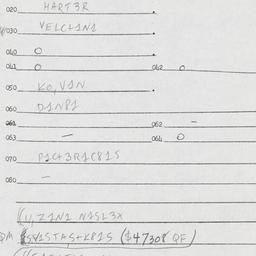 020 HART3R
030 VELC+1N1 .
040 O .
041 O 042 O
050 KO,V1N .
060 D1NP1
061 062 –
063 – 064 O
070 P1C+3R1C81S
080 –
(U,Z1N1 N1SL3X
QM (SV1STAS+KP1S ($47308 QF)